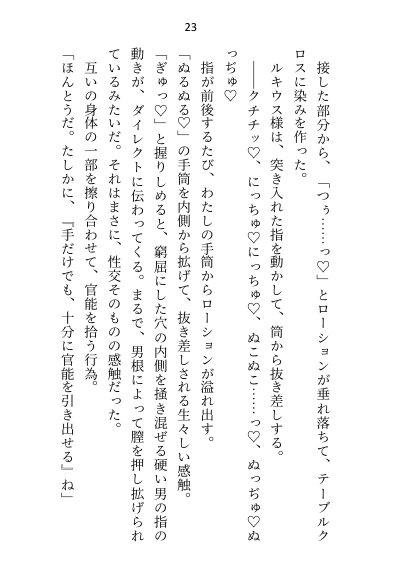 23
接した部分から、「つぅ……っ♡」とローションが垂れ落ちて、テーブルク
ロスに染みを作った。
　ルキウス様は、突き入れた指を動かして、筒から抜き差しする。
　――クチチッ♡、にっちゅ♡にっちゅ♡、ぬこぬこ……っ♡、ぬっぢゅ♡ぬ
っぢゅ♡
　指が前後するたび、わたしの手筒からローションが溢れ出す。
「ぬるぬる♡」の手筒を内側から拡げて、抜き差しされる生々しい感触。
「ぎゅっ♡」と握りしめると、窮屈にした穴の内側を掻き混ぜる硬い男の指の
動きが、ダイレクトに伝わってくる。まるで、男根によって膣を押し拡げられ
ているみたいだ。それはまさに、性交そのものの感触だった。
　互いの身体の一部を擦り合わせて、官能を拾う行為。
「ほんとうだ。たしかに、『手だけでも、十分に官能を引き出せる』ね」